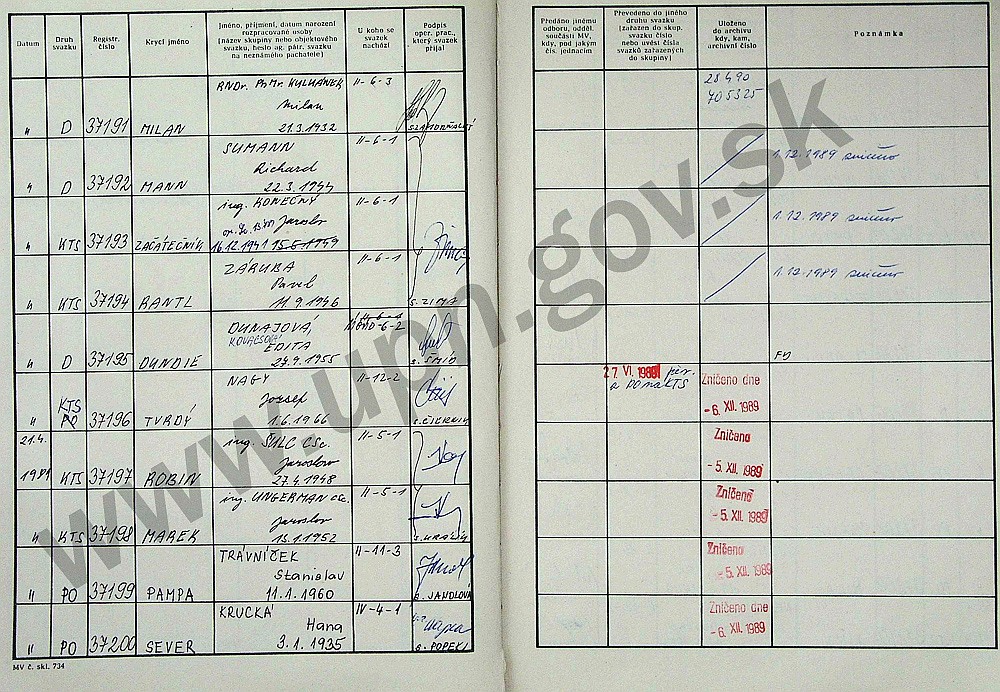 Datum
Druh svazku
Registr. číslo
Krycí jméno
Jméno, příjmení, datum narození
rozpracované osoby
(název skupiny nebo objektového
svazku, heslo ag. pátr. svazku
na neznámého pachatele)
U koho se svazek nachází
Podpis oper. prac., který svazek přijal
Předáno jinému odboru, odděl. součásti MV, kdy, pod jakým čís. jednacím
Převedeno do jiného druhu svazku (zařazen do skup. svazku číslo nebo uvést čísla svazků zařazených do skupiny)
Uloženo do archivu kdy, kam, archivní číslo
Poznámka
RNDr. PhMr. KULHÁNEK II-6-3
Milan
" D 37191 MILAN 21.3.1932
28490
705325
SUMANN II-6-1
Richard
" D 37192 MANN 22.3.1944
1.12.1989 zničeno
ing. KONEČNÝ II-6-1
Jaroslav
" KTS 37193 ZAČÁTEČNÍK 16.12.1941 15.6.1949
1.12.1989 zničeno
ZÁRUBA II-6-1
Pavel
" KTS 37194 RANTL 11.9.1946 s. ZIMA
1.12.1989 zničeno
DUNAJOVÁ, II-6-2
KOVÁCSOVÁ EDITA
" D 37195 DUNDIE 27.9.1955 s. ŠMÍD
NAGY II-12-2
KTS Jozsef
" PO 37196 TVRDÝ 1.6.1966
27. VI. 1989 per.
z PO na KTS
Zničeno dne
- 6. XII. 1989
21.4. ing. ŠULC CSc. II-5-1
Jaroslav
1989 KTS 37197 ROBIN 27.4.1948
Zničeno
- 5. XII. 1989
ing. UNGERMAN CSc. II-5-1
Jaroslav
" KTS 37198 MAREK 15.1.1952
Zničeno
- 5. XII. 1989
TRÁVNÍČEK II-11-3
Stanislav
" PO 37199 PAMPA 11.1.1960 s. JANDLOVÁ
Zničeno
- 5. XII. 1989
KRUCKÁ IV-4-1
Hana
" PO 37200 SEVER 3.1.1935
Zničeno dne
- 6. XII. 1989
MV č. skl. 734
www.upn.gov.sk